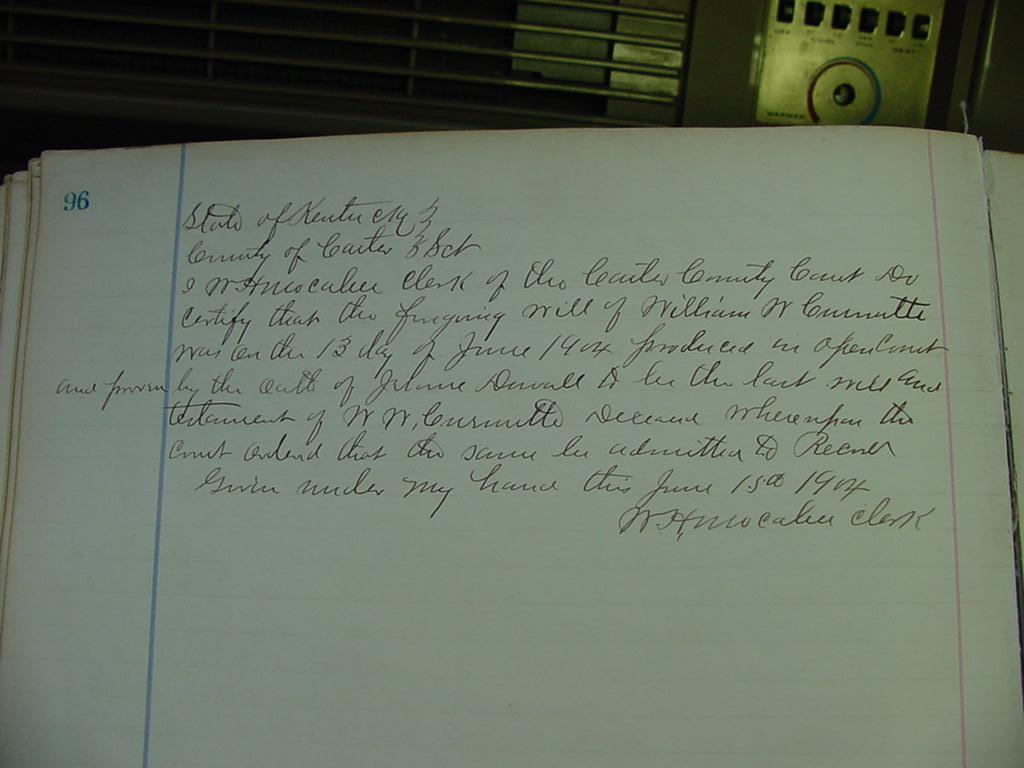 OFF COOL HEAT
WARMER
96
State of Kentucky }
County of Carter } Sct
I W H Clerk of the Carter County Court Do
certify that the forgoing will of William W Curnutte
was on the 13 day of June 1904 produced in open Court
and proven by the oath of Duvall to be the last will and
testament of W W. Curnutte Deceasd Whereupon the
Court orderd that the same be admitted to Record
Given under my hand this June 15th 1904
W. H. Clerk